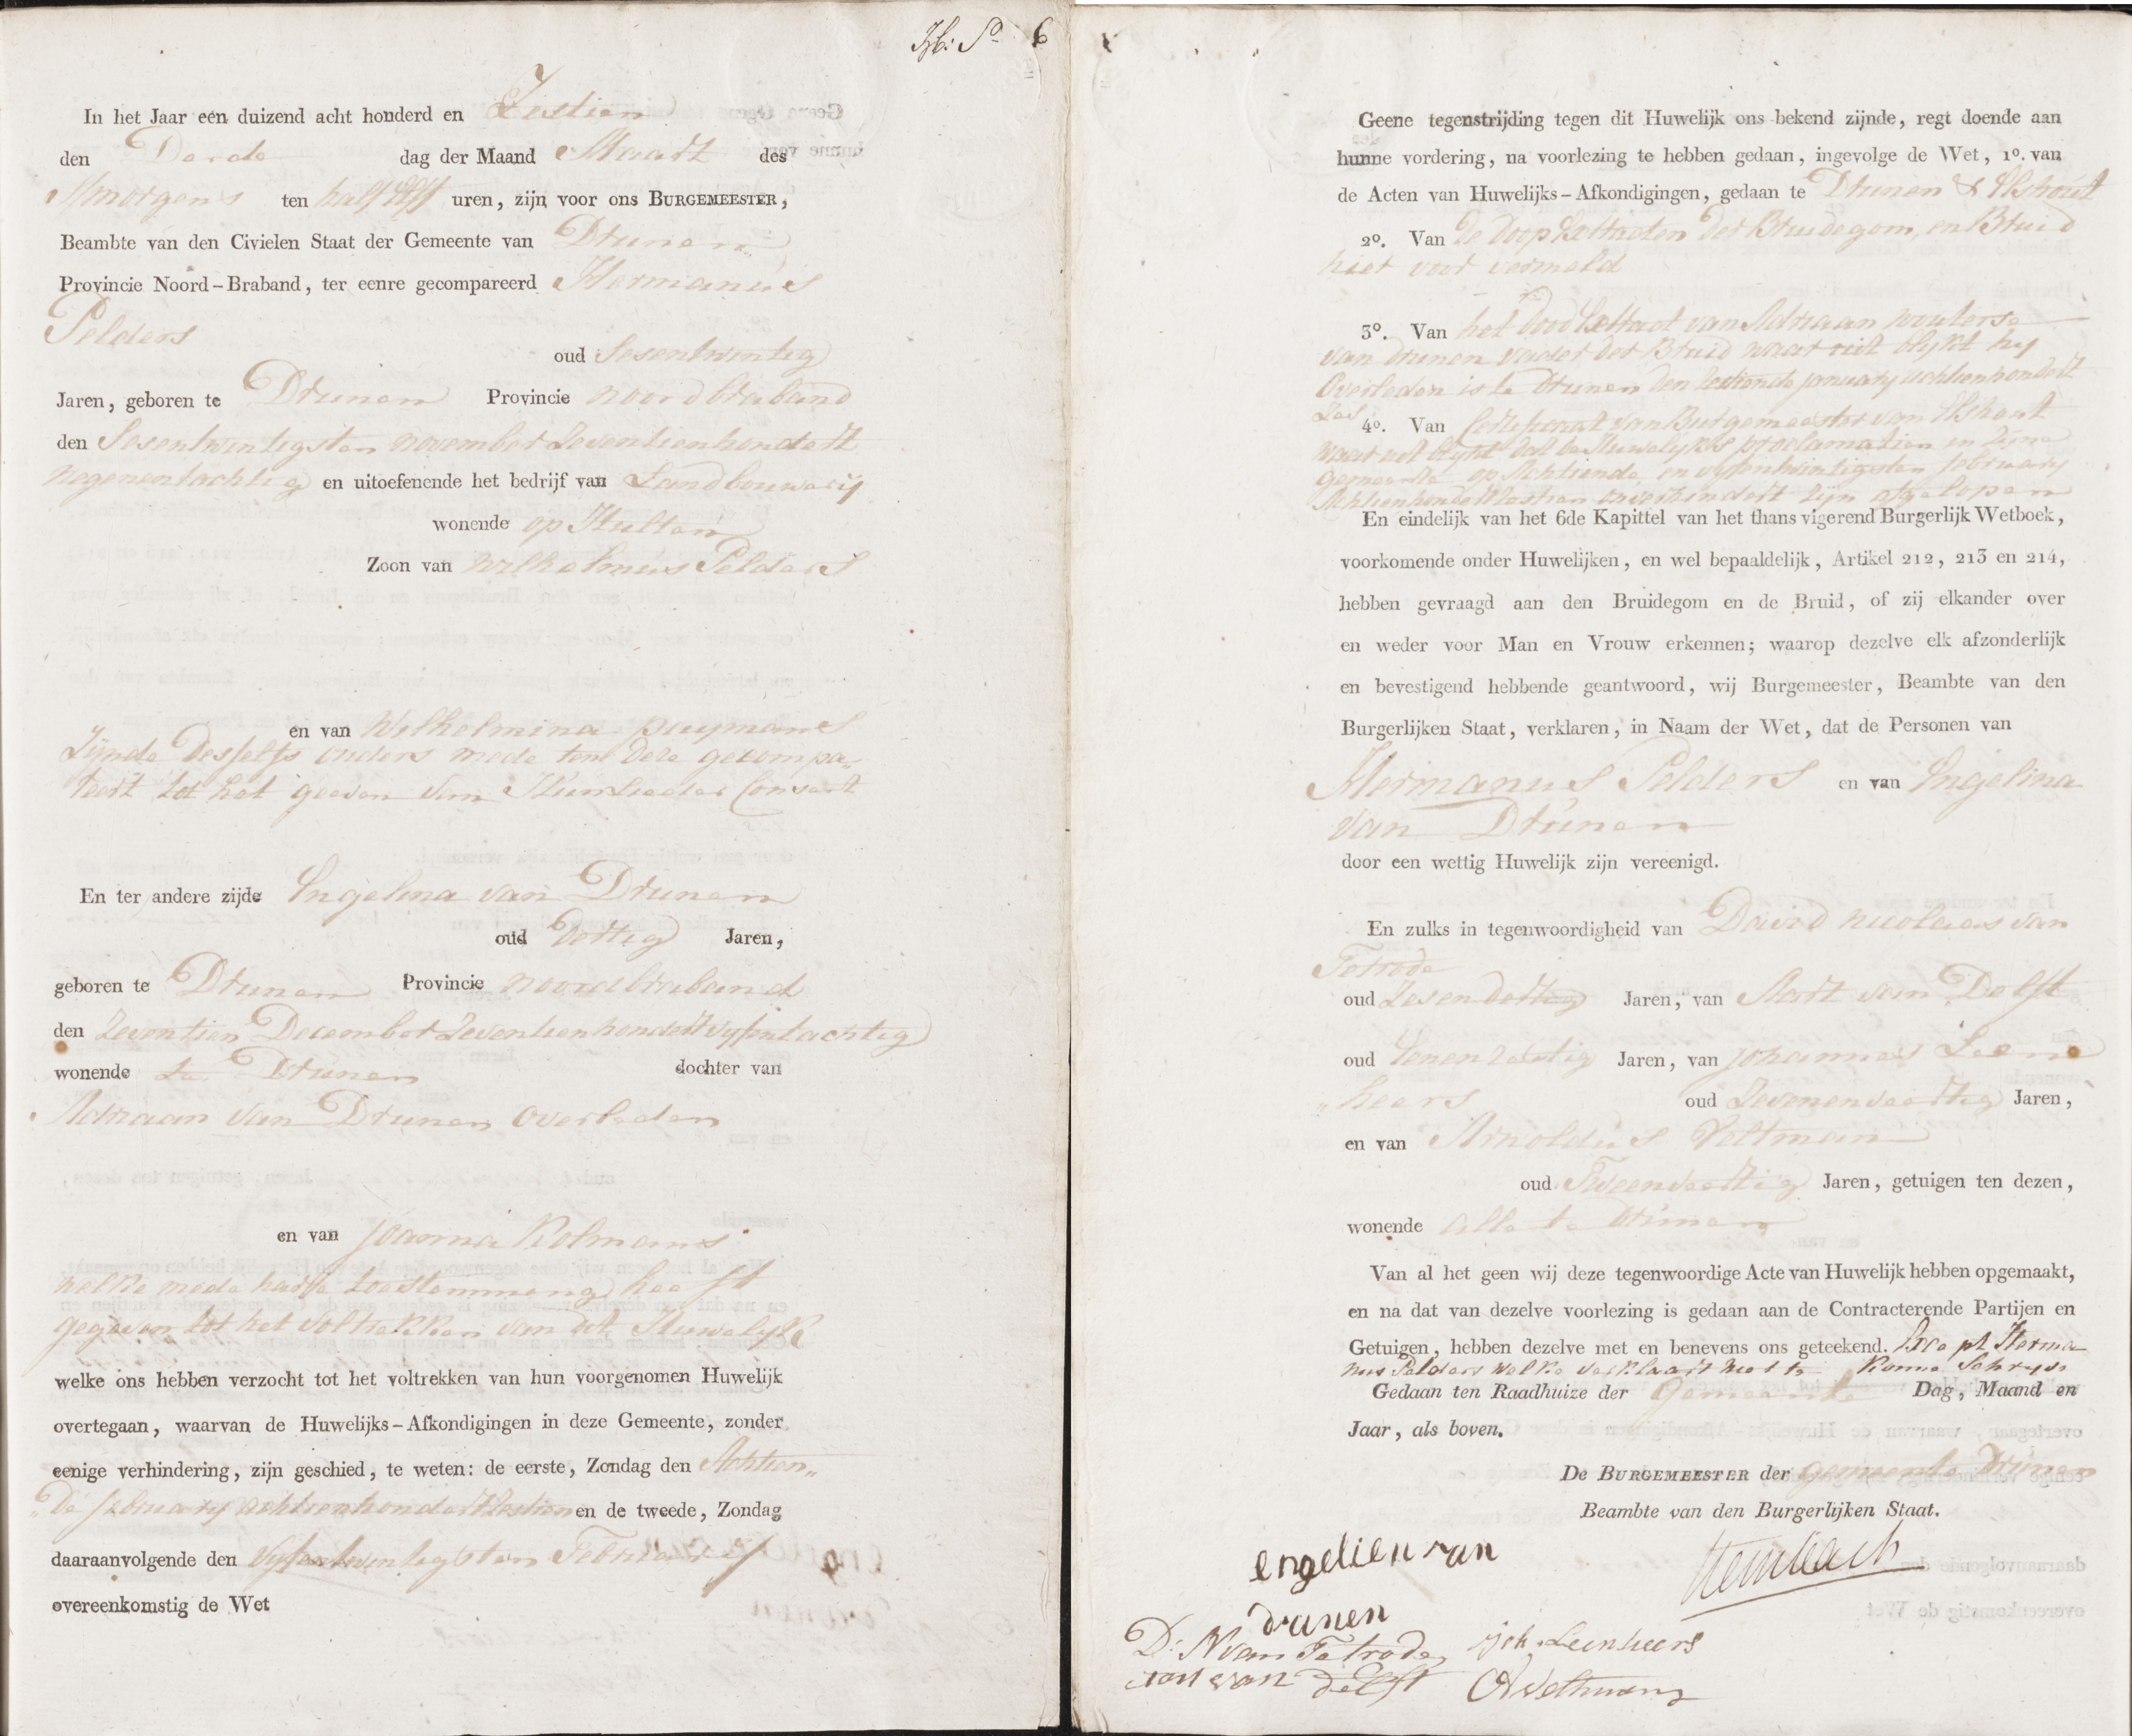 6
In het Jaar een duizend acht honderd en Zestien
den Derde dag der Maand Maart des
Smorgens ten half Elf uren, zijn voor ons BURGEMEESTER,
Beambte van den Civielen Staat der Gemeente van Drunen
Provincie Noord-Braband, ter eenre gecompareerd Hermanus
Pelders
oud Sesentwintig
Jaren, geboren te Drunen Provincie noordbraband
den Sesentwintigsten november Zeventienhondert
negenentachtig en uitoefenende het bedrijf van Landbouwerij
wonende op Hulten
Zoon van Wilhelmus Pelders
en van Wilhelmina puymans
Zijnde Desselfs ouders mede ten Deze gecompa„
reert tot het geeven van Hun lieder Consent
En ter andere zijde Engelina van Drunen
oud Dertig Jaren,
geboren te Drunen Provincie noordbraband
den Zeventien December Zeventienhondert vyfentachtig
wonende te Drunen dochter van
Adriaan van Drunen overleden
en van Joanna Kolmans
welke mede haare toestemming heeft
gegeven tot het voltrekken van dit Huwelyk
welke ons hebben verzocht tot het voltrekken van hun voorgenomen Huwelijk
overtegaan, waarvan de Huwelijks-Afkondigingen in deze Gemeente, zonder
eenige verhindering, zijn geschied, te weten: de eerste, Zondag den Achtien„
„De february achtienhondert Zestien en de tweede, Zondag
daaraanvolgende den vyfentwintigsten February
overeenkomstig de Wet
Geene tegenstrijding tegen dit Huwelijk ons bekend zijnde, regt doende aan
hunne vordering, na voorlezing te hebben gedaan, ingevolge de Wet, 1º. van
de Acten van Huwelijks-Afkondigingen, gedaan te Drunen & Elshout
2º. Van de Doop Extracten Der Bruidegom, en Bruid
hier voor vermeld
3º. Van het Dood Extract van Adriaan wouterse
van Drunen vader der Bruid waar uit blykt hy
Overleden is te Drunen den Zestiende january achtienhondert
Zes
4º. Van Certificaat van Burgemeester van Elshout
waar uit blykt dat de Huwelyks proclamatien in Zyne
gemeente op Achtiende en vyfentwintigsten february
Achtienhondert Zestien onverhindert Zyn afgelopen
En eindelijk van het 6de Kapittel van het thans vigerend Burgerlijk Wetboek,
voorkomende onder Huwelijken, en wel bepaaldelijk, Artikel 212, 213 en 214,
hebben gevraagd aan den Bruidegom en de Bruid, of zij elkander over
en weder voor Man en Vrouw erkennen; waarop dezelve elk afzonderlijk
en bevestigend hebbende geantwoord, wij Burgemeester, Beambte van den
Burgerlijken Staat, verklaren, in Naam der Wet, dat de Personen van
Hermanus Pelders en van Engelina
van Drunen
door een wettig Huwelijk zijn vereenigd.
En zulks in tegenwoordigheid van David nicolaas van
Tetrode
oud Zesendertig Jaren, van Aart van Delft
oud Jaren, van Johannes Leen„
„heers oud Zevenenveertig Jaren,
en van Arnoldus Veltman
oud Tweenveertig Jaren, getuigen ten dezen,
wonende alle te Drunen
Van al het geen wij deze tegenwoordige Acte van Huwelijk hebben opgemaakt,
en na dat van dezelve voorlezing is gedaan aan de Contracterende Partijen en
Getuigen, hebben dezelve met en benevens ons geteekend. Exept Herma
nus Pelders welke verklaart niet te Konne Schryve
Gedaan ten Raadhuize der Gemeente Dag, Maand en
Jaar, als boven.
De BURGEMEESTER der gemeente Drunen
Beambte van den Burgerlijken Staat.
engelien van
drunen
D: N van Tetrode Joh. Leenheers
aart van Delft A Veltman